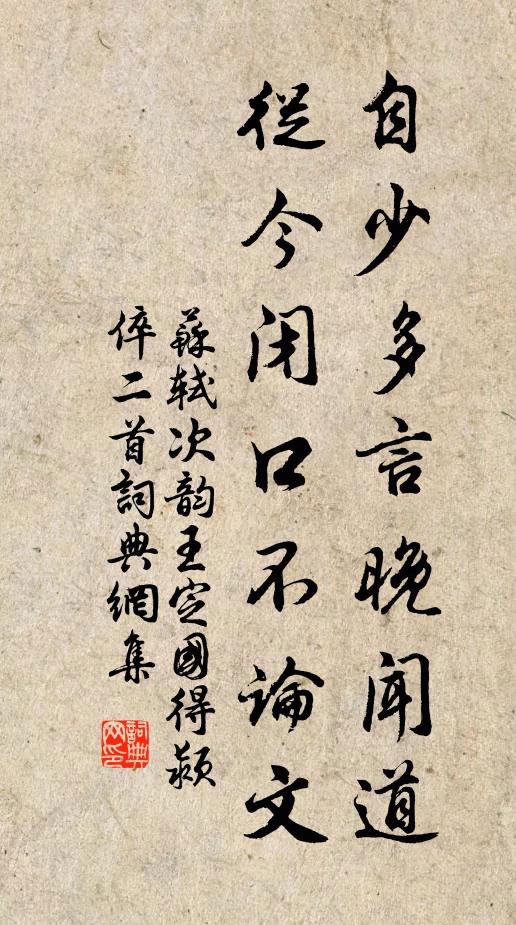 自少多言晚聞道
從今閉口不論文
蘇軾次韵王定國得潁
倅二首詞典網集
詞典網印